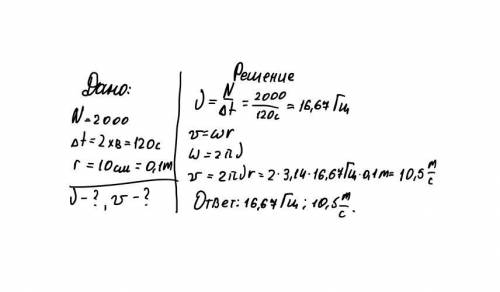 Дано:
N=2000
Δt=2хв=120с
r=10см=0,1м
ν-?, v-?
Решение
ν = N/Δt = 2000/120с = 16,67 Гц
v=ωr
ω=2πν
v=2πνr=2·3,14·16,67Гц·0,1м= 10,5 м/с
Ответ: 16,67 Гц; 10,5 м/с.